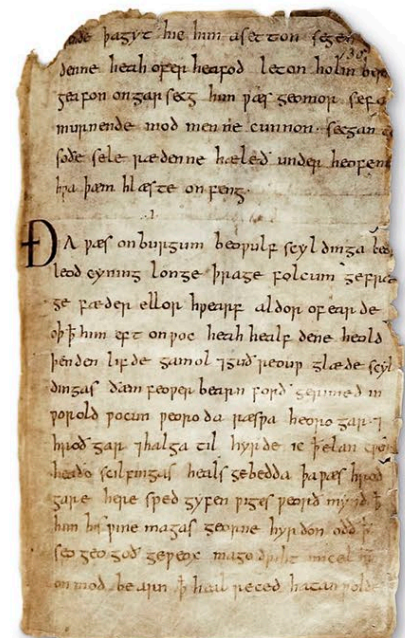 þa gyt hie him asetton segen
denne heah ofer heafod leton holm ber
geafon on garsecg him ƿæs geomor sefa
murnende mod men ne cunnon · secgan
soðe sele rædenne hæleð under heofen
hƿa þæm hlæste onfeng ·
ÐA ƿæs on burgum beoƿulf scyldinga
leod cyning longe þrage folcum gefræ
ge fæder ellor hƿearf aldor of earde
oþ ꝥ him eft onƿoc heah healfdene heold
þenden lifde gamol ⁊ guð reouƿ glæde scyl
dingas ðæm feoƿer bearn forð gerimed in
ƿorold ƿocun ƿeoroda ræsƿa heorogar · ⁊
hroð gar ⁊ halga til hyrde ic ꝥ elan cƿen
heaðo scilfingas heals gebedda þa ƿæs hroð
gare here sped gyfen ƿiges ƿeorð mynd ꝥ
him his ƿine magas georne hyrdon oðð ꝥ
seo geogoð geƿeox mago driht micel
on mod bearn ꝥ heal reced hatan ƿolde